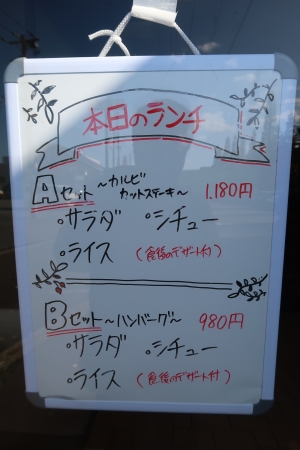 本日のランチ
Aセット ～カルビ
カットステーキ～ 1.180円
・サラダ ・シチュー
・ライス (食後のデザート付)
Bセット ～ハンバーグ～ 980円
・サラダ ・シチュー
・ライス (食後のデザート付)